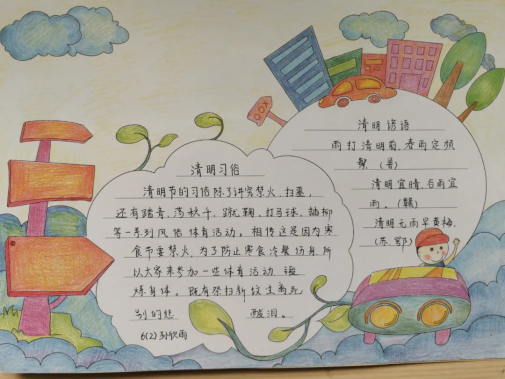 清明习俗
清明节的习俗除了讲究禁火、扫墓,
还有踏青、荡秋千、蹴鞠、打马球、插柳
等一系列风俗体育活动。相传这是因为寒
食节要禁火,为了防止寒食冷餐伤身,所
以大家来参加一些体育活动 锻
炼身体。既有祭扫新坟生离死
别的悲 酸泪。
6(2)
清明谚语
雨打清明前,春雨定频
繁(鲁)
清明宜晴,谷雨宜
雨。(赣)
清明无雨旱黄梅,
(苏、鄂)